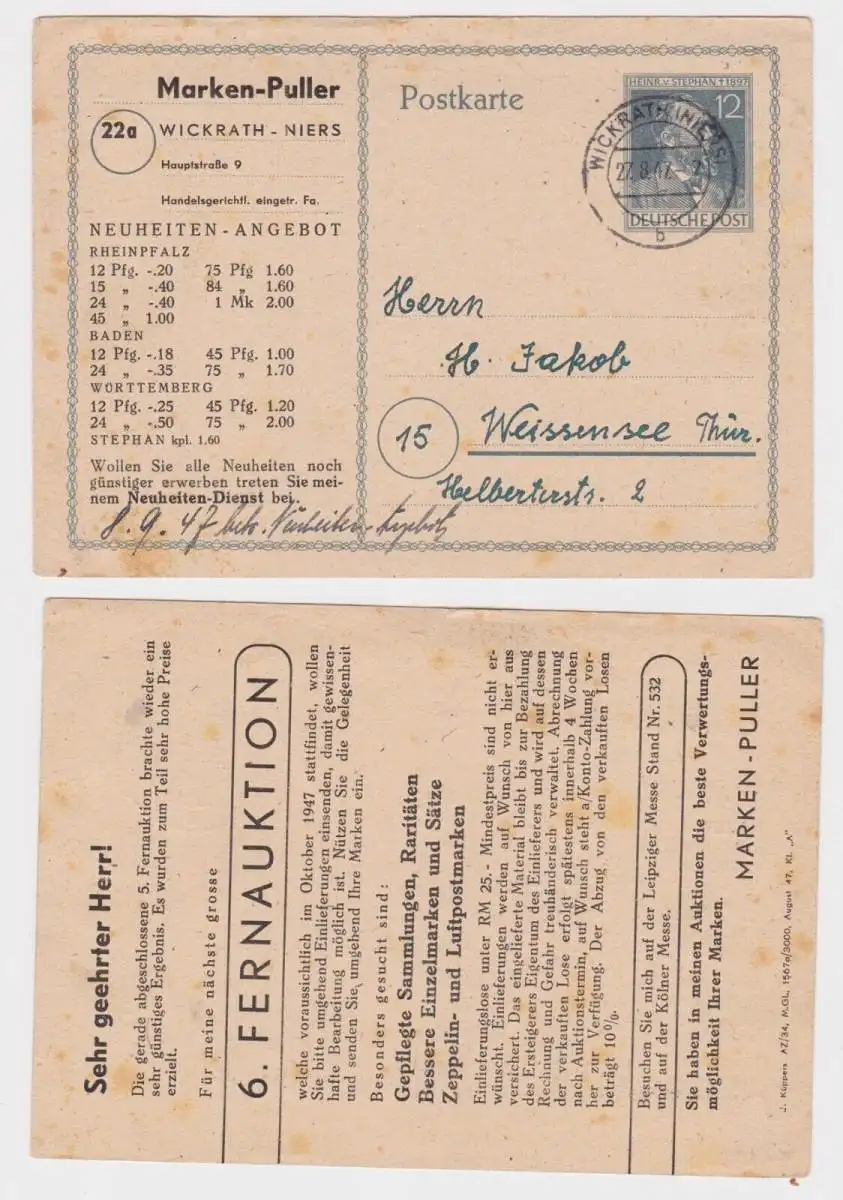 Marken-Puller
22a
WICKRATH - NIERS
Hauptstraße 9
Handelsgerichtl. eingetr. Fa.
NEUHEITEN - ANGEBOT
RHEINPFALZ
12 Pfg. -.20 75 Pfg 1.60
15 „ -.40 84 „ 1.60
24 „ -.40 1 Mk 2.00
45 „ 1.00
BADEN
12 Pfg. -.18 45 Pfg. 1.00
24 „ -.35 75 „ 1.70
WÜRTTEMBERG
12 Pfg. -.25 45 Pfg. 1.20
24 „ -.50 75 „ 2.00
STEPHAN kpl. 1.60
Wollen Sie alle Neuheiten noch
günstiger erwerben treten Sie mei-
nem Neuheiten-Dienst bei.
8. 9. 47 betr. Neuheiten-Angebot
Postkarte
HEINR. v. STEPHAN † 1897
12
DEUTSCHE POST
WICKRATH (NIERS)
27.8.47
b
Herrn
H. Jakob
15
Weissensee Thür.
Helberterstr. 2
Sehr geehrter Herr!
Die gerade abgeschlossene 5. Fernauktion brachte wieder ein
sehr günstiges Ergebnis. Es wurden zum Teil sehr hohe Preise
erzielt.
Für meine nächste grosse
6. FERNAUKTION
welche voraussichtlich im Oktober 1947 stattfindet, wollen
Sie bitte umgehend Einlieferungen einsenden, damit gewissen-
hafte Bearbeitung möglich ist. Nützen Sie die Gelegenheit
und senden Sie umgehend Ihre Marken ein.
Besonders gesucht sind:
Gepflegte Sammlungen, Raritäten
Bessere Einzelmarken und Sätze
Zeppelin- und Luftpostmarken
Einlieferungslose unter RM 25.- Mindestpreis sind nicht er-
wünscht. Einlieferungen werden auf Wunsch von hier aus
versichert. Das eingelieferte Material bleibt bis zur Bezahlung
des Ersteigerers Eigentum des Einlieferers und wird auf dessen
Rechnung und Gefahr treuhänderisch verwaltet. Abrechnung
der verkauften Lose erfolgt spätestens innerhalb 4 Wochen
nach Auktionstermin, auf Wunsch steht a/Konto-Zahlung vor-
her zur Verfügung. Der Abzug von den verkauften Losen
beträgt 10%.
Besuchen Sie mich auf der Leipziger Messe Stand Nr. 532
und auf der Kölner Messe.
Sie haben in meinen Auktionen die beste Verwertungs-
möglichkeit Ihrer Marken.
MARKEN - PULLER
J. Küppers AZ/34, M.GL. 1567a/3000, August 47, Kl. „A"